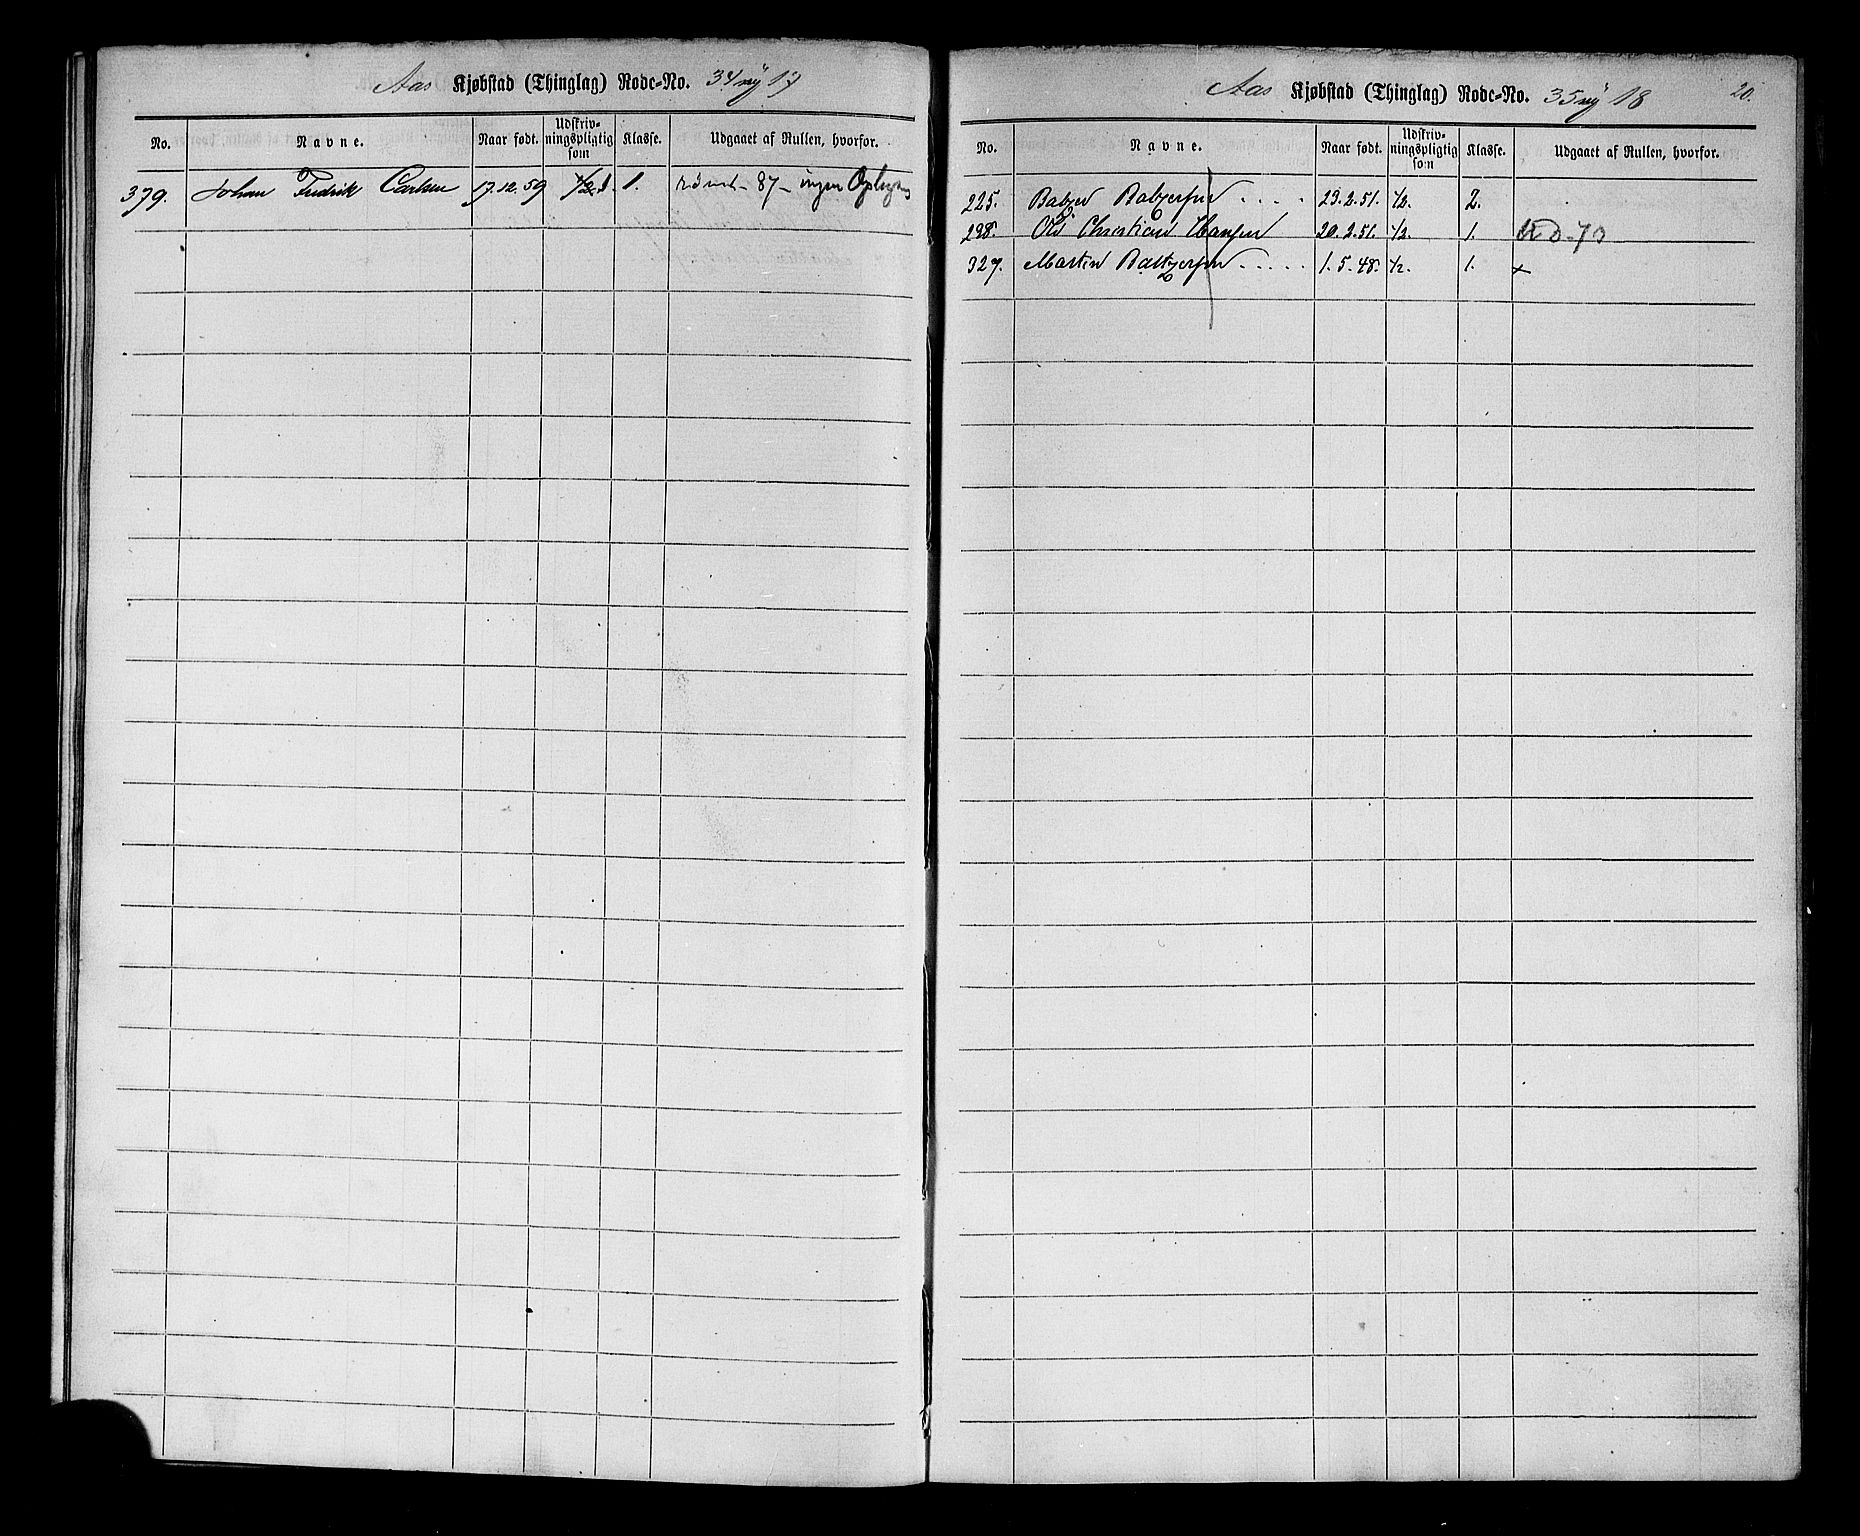 Aas Kjøbstad (Thinglag) Rode-No. 34 ny 17
No. Navne. Naar født. Udskriv-ningspligtig som Klasse. Udgaaet af Rullen, hvorfor.
379. Johan Fredrik Carlsen 17.12.59 1/2 1. 87 - ingen
Aas Kjøbstad (Thinglag) Rode-No. 35 ny 18 20.
No. Navne. Naar født. Udskriv-ningspligtig som Klasse. Udgaaet af Rullen, hvorfor.
225. Balzer Balzersen .... 23.2.51. 1/2. 2.
298. Ole Christian Hansen 20.2.51. 1/2. 1.
327. Martin Baltzersen ..... 1.5.48. 1/2. 1. +